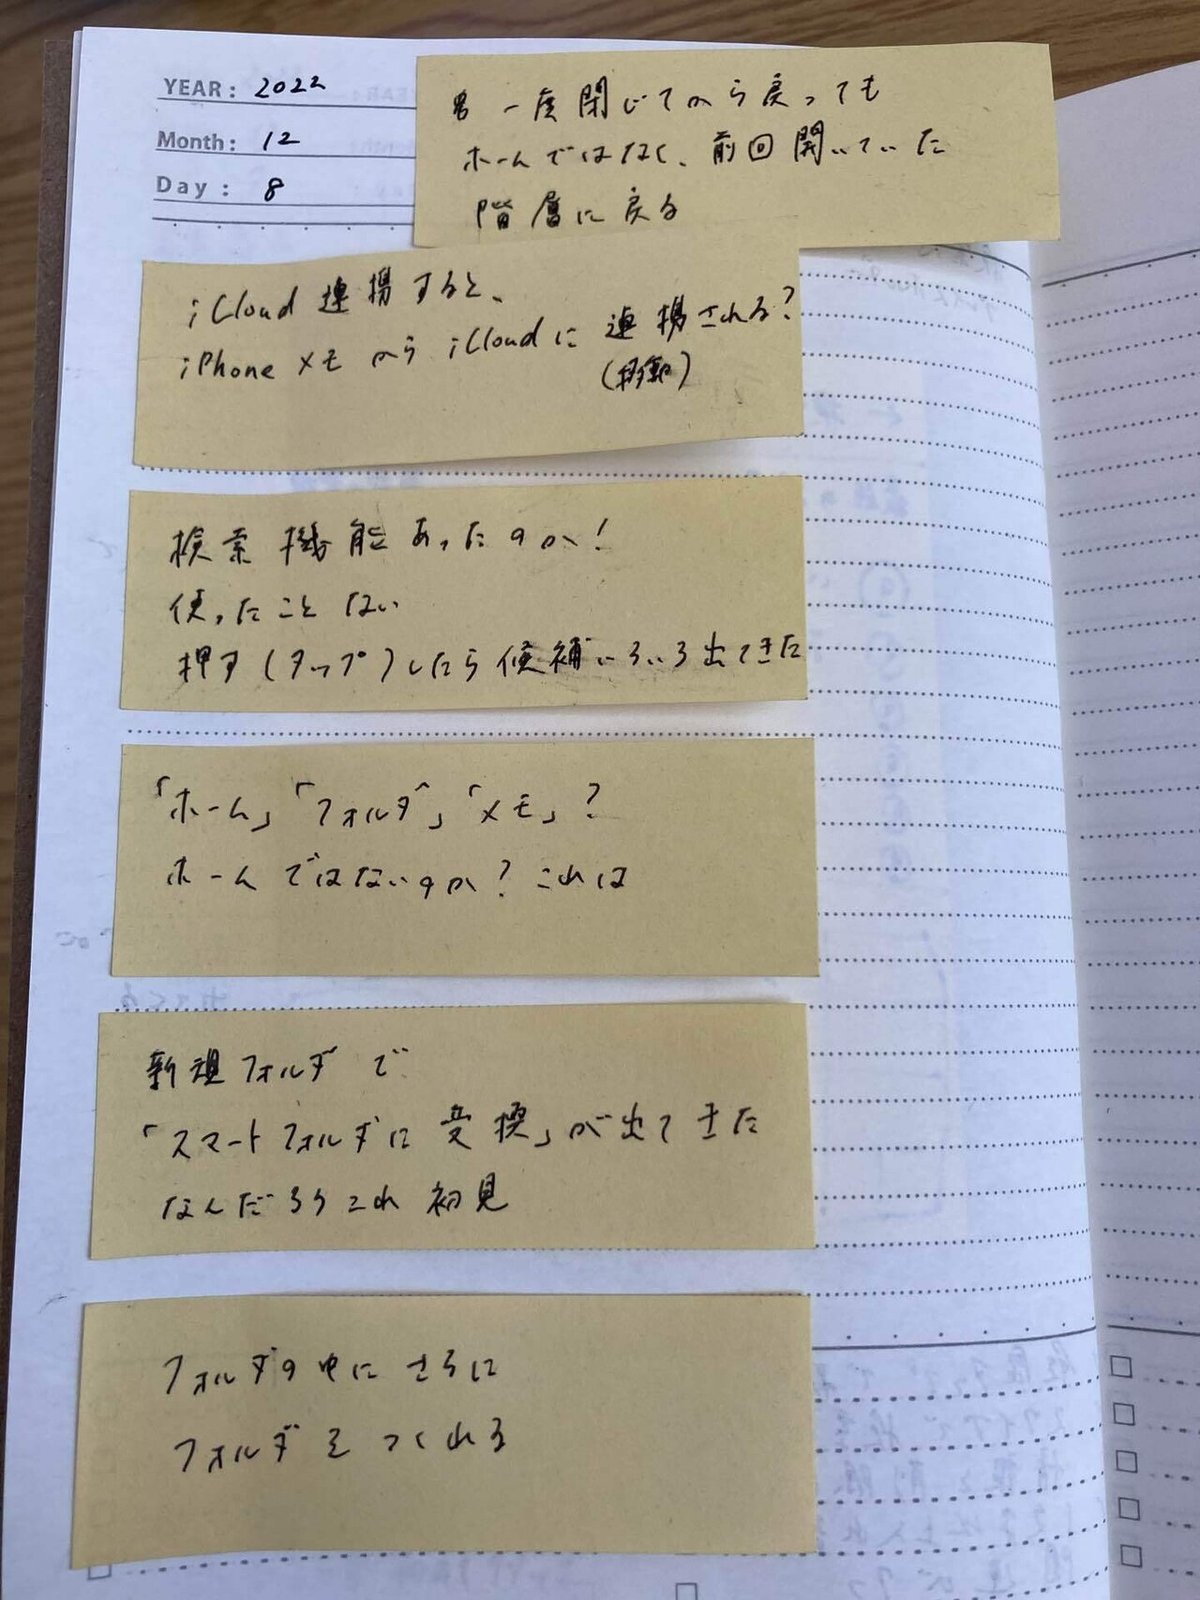 YEAR: 2022
Month: 12
Day: 8
一度閉じてから戻っても
ホームではなく、前回開いていた
階層に戻る
iCloud 連携すると、
iPhoneメモ から iCloudに 連携される?
(移動)
検索機能あったのか!
使ったことない
押す(タップ)したら候補いろいろ出てきた
「ホーム」「フォルダ」「メモ」?
ホームではないのか? これは
新規フォルダで
「スマートフォルダに変換」が出てきた
なんだろうこれ 初見
フォルダの中にさらに
フォルダをつくれる